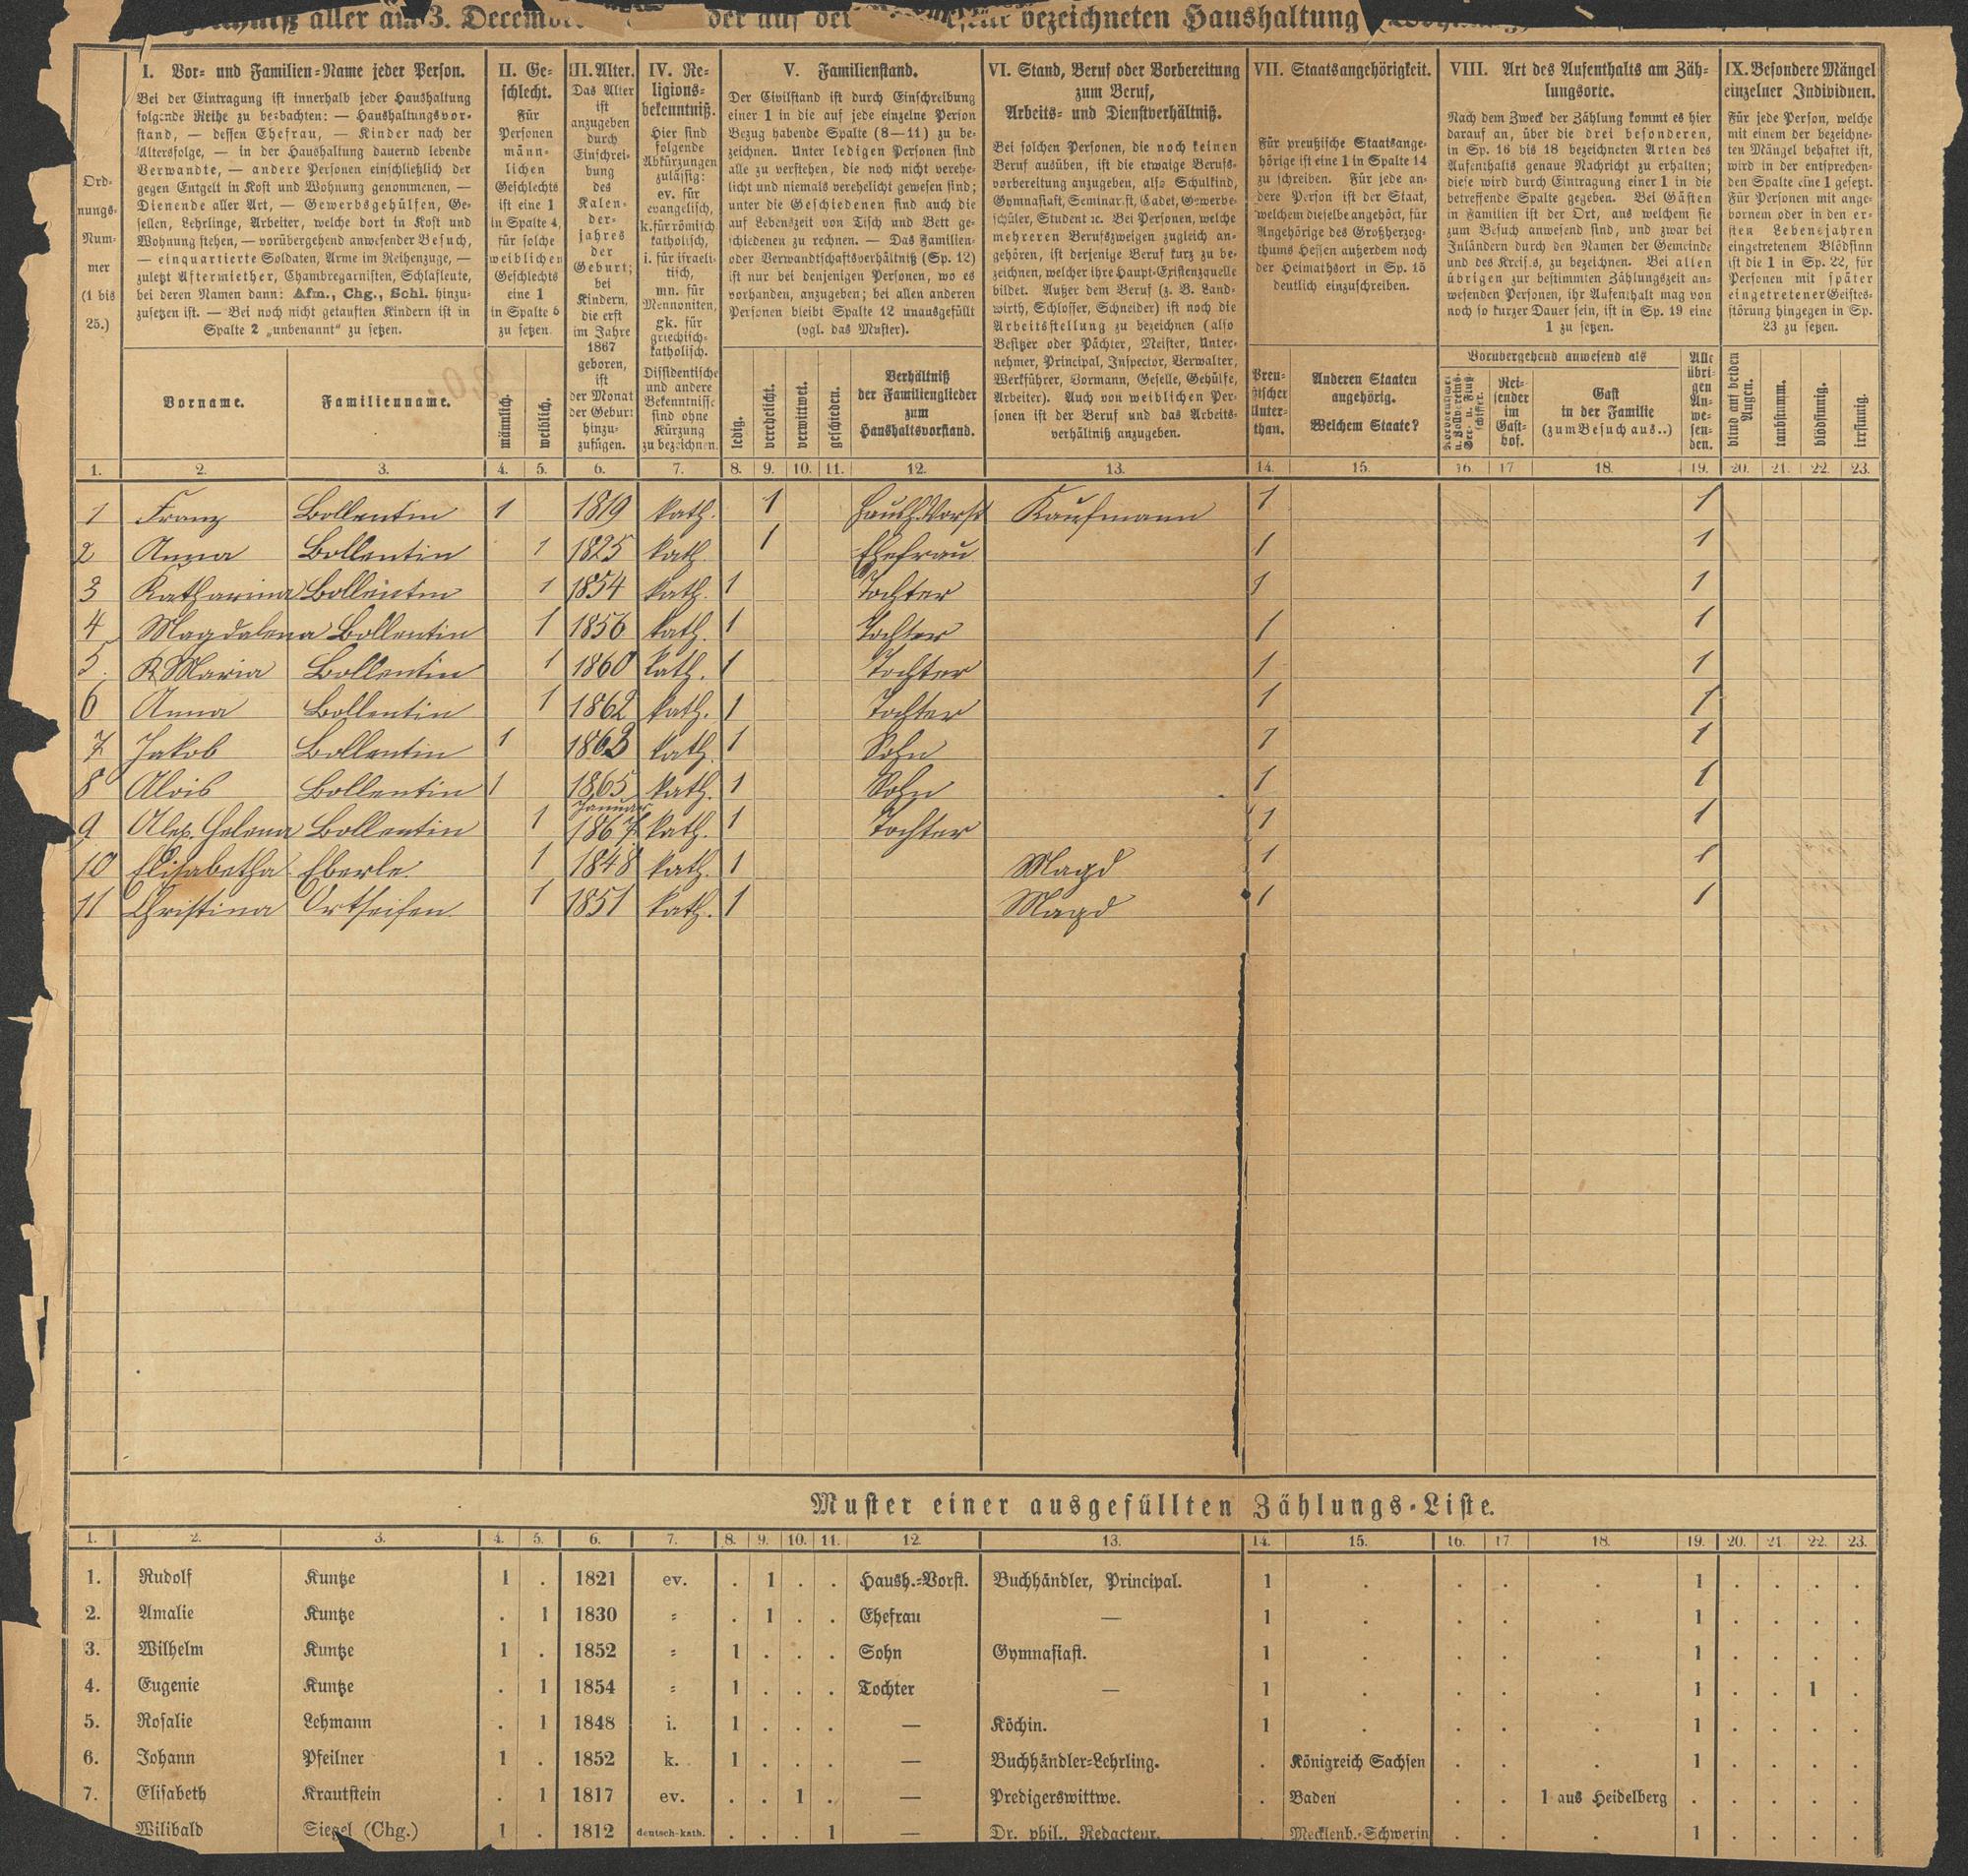 aller am 3. December der auf der bezeichneten Haushaltung
Ord-
nungs-
Num-
mer
(1 bis
25.)
I. Vor- und Familien-Name jeder Person.
Bei der Eintragung ist innerhalb jeder Haushaltung
folgende Reihe zu beobachten: — Haushaltungsvor-
stand, — dessen Ehefrau, — Kinder nach der
Altersfolge, — in der Haushaltung dauernd lebende
Verwandte, — andere Personen einschließlich der
gegen Entgelt in Kost und Wohnung genommenen, —
Dienende aller Art, — Gewerbsgehülfen, Ge-
sellen, Lehrlinge, Arbeiter, welche dort in Kost und
Wohnung stehen, — vorübergehend anwesender Besuch,
— einquartierte Soldaten, Arme im Reihenzuge, —
zuletzt Aftermiether, Chambregarnisten, Schlafleute,
bei deren Namen dann: Afm., Chg., Schl. hinzu-
zusetzen ist. — Bei noch nicht getauften Kindern ist in
Spalte 2 „unbenannt“ zu setzen.
Vorname.
Familienname.
II. Ge-
schlecht.
Für
Personen
männ-
lichen
Geschlechts
ist eine 1
in Spalte 4,
für solche
weiblichen
Geschlechts
eine 1
in Spalte 5
zu setzen.
männlich.
weiblich.
III. Alter.
Das Alter
ist
anzugeben
durch
Einschrei-
bung
des
Kalen-
der-
jahres
der
Geburt;
bei
Kindern,
die erst
im Jahre
1867
geboren,
ist
der Monat
der Geburt
hinzu-
zufügen.
IV. Re-
ligions-
bekenntniß.
Hier sind
folgende
Abkürzungen
zulässig:
ev. für
evangelisch,
k. für römisch
katholisch,
i. für israeli-
tisch,
mn. für
Mennoniten,
gk. für
griechisch-
katholisch.
Dissidentische
und andere
Bekenntnisse
sind ohne
Kürzung
zu bezeichnen.
V. Familienstand.
Der Civilstand ist durch Einschreibung
einer 1 in die auf jede einzelne Person
Bezug habende Spalte (8—11) zu be-
zeichnen. Unter ledigen Personen sind
alle zu verstehen, die noch nicht verehe-
licht und niemals verehelicht gewesen sind;
unter die Geschiedenen sind auch die
auf Lebenszeit von Tisch und Bett ge-
schiedenen zu rechnen. — Das Familien-
oder Verwandtschaftsverhältniß (Sp. 12)
ist nur bei denjenigen Personen, wo es
vorhanden, anzugeben; bei allen anderen
Personen bleibt Spalte 12 unausgefüllt
(vgl. das Muster).
ledig.
verehelicht.
verwittwet.
geschieden.
Verhältniß
der Familienglieder
zum
Haushaltsvorstand.
VI. Stand, Beruf oder Vorbereitung
zum Beruf,
Arbeits- und Dienstverhältniß.
Bei solchen Personen, die noch keinen
Beruf ausüben, ist die etwaige Berufs-
vorbereitung anzugeben, also Schulkind,
Gymnasiast, Seminarist, Cadet, Gewerbe-
schüler, Student ꝛc. Bei Personen, welche
mehreren Berufszweigen zugleich an-
gehören, ist derjenige Beruf kurz zu be-
zeichnen, welcher ihre Haupt-Existenzquelle
bildet. Außer dem Beruf (z. B. Land-
wirth, Schlosser, Schneider) ist noch die
Arbeitsstellung zu bezeichnen (also
Besitzer oder Pächter, Meister, Unter-
nehmer, Principal, Inspector, Verwalter,
Werkführer, Vormann, Geselle, Gehülfe,
Arbeiter). Auch von weiblichen Per-
sonen ist der Beruf und das Arbeits-
verhältniß anzugeben.
VII. Staatsangehörigkeit.
Für preußische Staatsange-
hörige ist eine 1 in Spalte 14
zu schreiben. Für jede an-
dere Person ist der Staat,
welchem dieselbe angehört, für
Angehörige des Großherzog-
thums Hessen außerdem noch
der Heimathsort in Sp. 15
deutlich einzuschreiben.
Preu-
ßischer
Unter-
than.
Anderen Staaten
angehörig.
Welchem Staate?
VIII. Art des Aufenthalts am Zäh-
lungsorte.
Nach dem Zweck der Zählung kommt es hier
darauf an, über die drei besonderen,
in Sp. 16 bis 18 bezeichneten Arten des
Aufenthalts genaue Nachricht zu erhalten;
diese wird durch Eintragung einer 1 in die
betreffende Spalte gegeben. Bei Gästen
in Familien ist der Ort, aus welchem sie
zum Besuch anwesend sind, und zwar bei
Inländern durch den Namen der Gemeinde
und des Kreises, zu bezeichnen. Bei allen
übrigen zur bestimmten Zählungszeit an-
wesenden Personen, ihr Aufenthalt mag von
noch so kurzer Dauer sein, ist in Sp. 19 eine
1 zu setzen.
Vorübergehend anwesend als
Rei-
sender
im
Gast-
hof.
Gast
in der Familie
(zum Besuch aus..)
Alle
übri-
gen
An-
we-
sen-
den.
IX. Besondere Mängel
einzelner Individuen.
Für jede Person, welche
mit einem der bezeichne-
ten Mängel behaftet ist,
wird in der entsprechen-
den Spalte eine 1 gesetzt.
Für Personen mit ange-
bornem oder in den er-
sten Lebensjahren
eingetretenem Blödsinn
ist die 1 in Sp. 22, für
Personen mit später
eingetretener Geistes-
störung hingegen in Sp.
23 zu setzen.
blind auf beiden
Augen.
taubstumm.
blödsinnig.
irrsinnig.
1. 2. 3. 4. 5. 6. 7. 8. 9. 10. 11. 12. 13. 14. 15. 16. 17 18. 19. 20. 21. 22. 23.
1 Franz Bollentin 1 1819 kath. 1 Haush.Vorst Kaufmann 1 1
2 Anna Bollentin 1 1825 kath. 1 Ehefrau 1 1
3 Katharina Bollentin 1 1854 kath. 1 Tochter 1 1
4 Magdalena Bollentin 1 1856 kath. 1 Tochter 1 1
5. Maria Bollentin 1 1860 kath. 1 Tochter 1 1
6 Anna Bollentin 1 1862 kath. 1 Tochter 1 1
7 Jakob Bollentin 1 1863 kath. 1 Sohn 1 1
8 Alois Bollentin 1 1865 kath. 1 Sohn 1 1
Januar
9 Alex. Helena Bollentin 1 1867 kath. 1 Tochter 1 1
10 Elisabetha Eberle. 1 1848 kath. 1 Magd 1 1
11 Christina Ortseifen. 1 1851 kath. 1 Magd 1 1
Muster einer ausgefüllten Zählungs-Liste.
1. 2. 3. 4. 5. 6. 7. 8. 9. 10. 11. 12. 13. 14. 15. 16. 17 18. 19. 20. 21. 22. 23.
1. Rudolf Kuntze 1 . 1821 ev. . 1 . . Haush.-Vorst. Buchhändler, Principal. 1 . . . . 1 . . . .
2. Amalie Kuntze . 1 1830 „ . 1 . . Ehefrau — 1 . . . . 1 . . . .
3. Wilhelm Kuntze 1 . 1852 „ 1 . . . Sohn Gymnasiast. 1 . . . . 1 . . . .
4. Eugenie Kuntze . 1 1854 „ 1 . . . Tochter — 1 . . . . 1 . . 1 .
5. Rosalie Lehmann . 1 1848 i. 1 . . . — Köchin. 1 . . . . 1 . . . .
6. Johann Pfeilner 1 . 1852 k. 1 . . . — Buchhändler-Lehrling. . Königreich Sachsen . . . 1 . . . .
7. Elisabeth Krautstein . 1 1817 ev. . . 1 . — Predigerswittwe. . Baden . . 1 aus Heidelberg . . . . .
Wilibald Siegel (Chg.) 1 . 1812 deutsch-kath. . . . 1 — Dr. phil., Redacteur. Mecklenb.-Schwerin . . . 1 . . . .